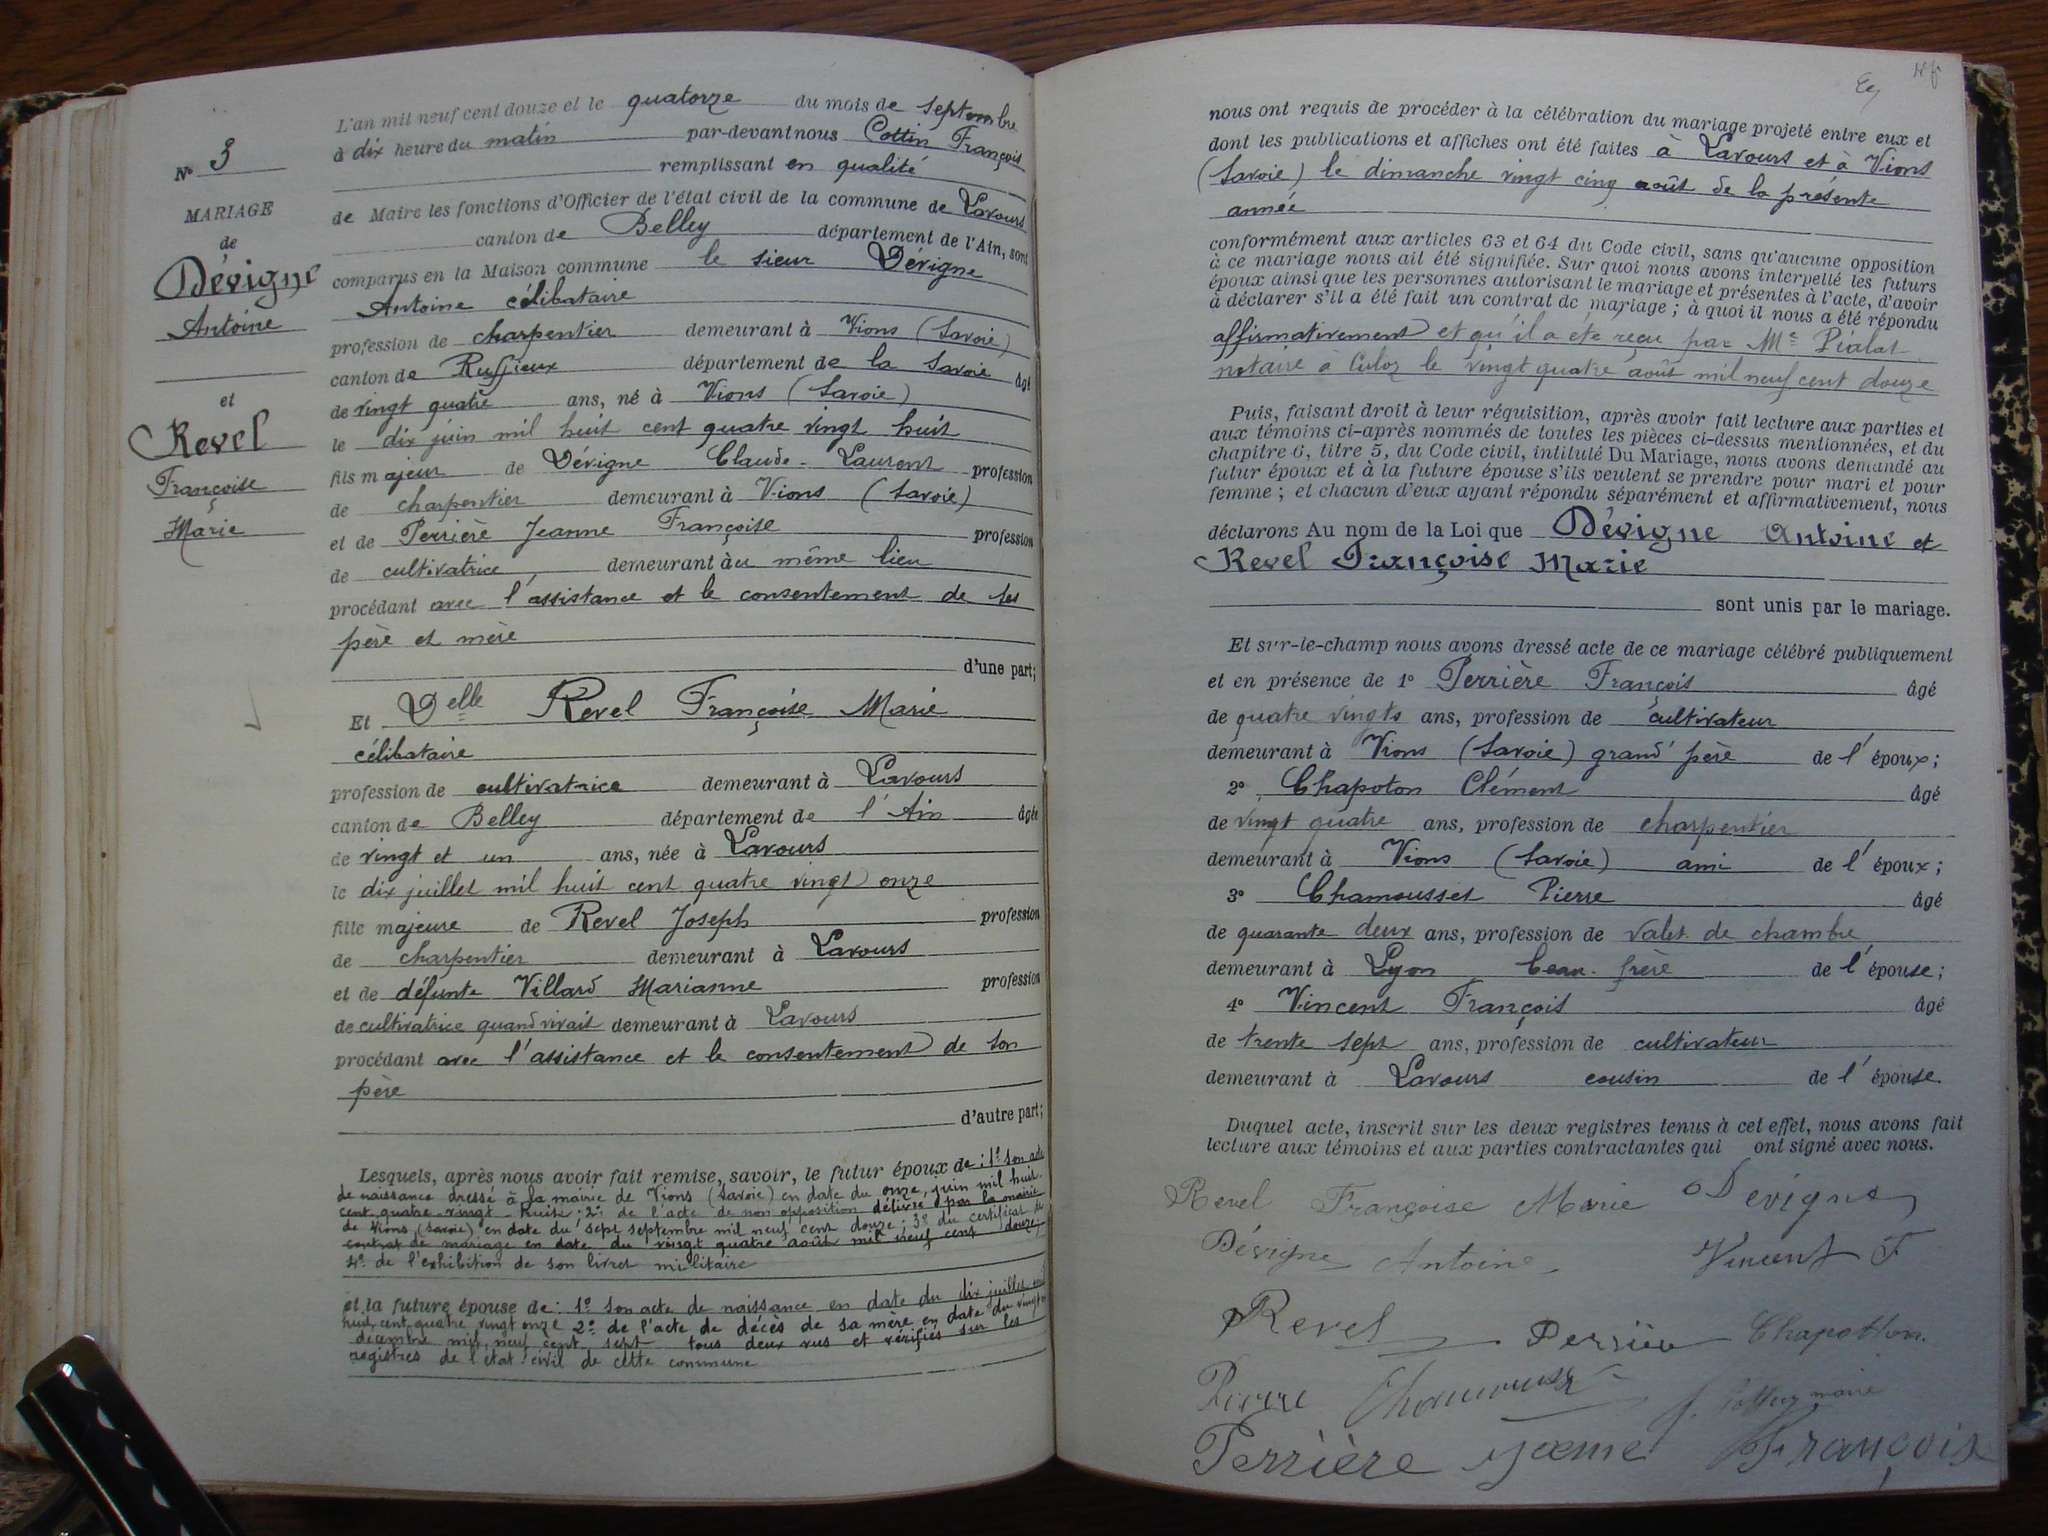 N° 3
MARIAGE
de
Dévigne
Antoine
et
Revel
Françoise
Marie
L'an mil neuf cent douze et le quatorze du mois de septembre
à dix heure du matin par-devant nous Cottin François
remplissant en qualité
de Maire les fonctions d'Officier de l'état civil de la commune de Lavours
canton de Belley département de l'Ain, sont
comparus en la Maison commune le sieur Dévigne
Antoine célibataire
profession de charpentier demeurant à Vions (Savoie)
canton de Ruffieux département de la Savoie âgé
de vingt quatre ans, né à Vions (Savoie)
le dix juin mil huit cent quatre vingt huit
fils majeur de Dévigne Claude-Laurent profession
de charpentier demeurant à Vions (Savoie)
et de Perrière Jeanne Françoise profession
de cultivatrice demeurant au même lieu
procédant avec l'assistance et le consentement de ses
père et mère
d'une part;
Et Delle Revel Françoise Marie
célibataire
profession de cultivatrice demeurant à Lavours
canton de Belley département de l'Ain âgée
de vingt et un ans, née à Lavours
le dix juillet mil huit cent quatre vingt onze
fille majeure de Revel Joseph profession
de charpentier demeurant à Lavours
et de défunte Villard Marianne profession
de cultivatrice quand vivait demeurant à Lavours
procédant avec l'assistance et le consentement de son
père
d'autre part;
Lesquels, après nous avoir fait remise, savoir, le futur époux de: 1° son acte
de naissance dressé à la mairie de Vions (Savoie) en date du onze juin mil huit
cent quatre-vingt-huit; 2° de l'acte de non opposition délivré par la mairie
de Vions (Savoie) en date du sept septembre mil neuf cent douze; 3° du certificat de
contrat de mariage en date du vingt quatre août mil neuf cent douze;
4° de l'exhibition de son livret militaire
et la future épouse de: 1° son acte de naissance en date du dix juillet mil
huit cent quatre vingt onze 2° de l'acte de décès de sa mère en date du vingt
décembre mil neuf cent sept tous deux vus et vérifiés sur les
registres de l'état civil de cette commune
nous ont requis de procéder à la célébration du mariage projeté entre eux et
dont les publications et affiches ont été faites à Lavours et à Vions
(Savoie) le dimanche vingt cinq août de la présente
année
conformément aux articles 63 et 64 du Code civil, sans qu'aucune opposition
à ce mariage nous ait été signifiée. Sur quoi nous avons interpellé les futurs
époux ainsi que les personnes autorisant le mariage et présentes à l'acte, d'avoir
à déclarer s'il a été fait un contrat de mariage; à quoi il nous a été répondu
affirmativement et qu'il a été reçu par Me Pialat
notaire à Culoz le vingt quatre août mil neuf cent douze
Puis, faisant droit à leur réquisition, après avoir fait lecture aux parties et
aux témoins ci-après nommés de toutes les pièces ci-dessus mentionnées, et du
chapitre 6, titre 5, du Code civil, intitulé Du Mariage, nous avons demandé au
futur époux et à la future épouse s'ils veulent se prendre pour mari et pour
femme; et chacun d'eux ayant répondu séparément et affirmativement, nous
déclarons Au nom de la Loi que Dévigne Antoine et
Revel Françoise Marie
sont unis par le mariage.
Et sur-le-champ nous avons dressé acte de ce mariage célébré publiquement
et en présence de 1° Perrière François âgé
de quatre vingts ans, profession de cultivateur
demeurant à Vions (Savoie) grand'père de l'époux;
2° Chapoton Clément âgé
de vingt quatre ans, profession de charpentier
demeurant à Vions (Savoie) ami de l'époux;
3° Chamousset Pierre âgé
de quarante deux ans, profession de valet de chambre
demeurant à Lyon beau-frère de l'épouse;
4° Vincent François âgé
de trente sept ans, profession de cultivateur
demeurant à Lavours cousin de l'épouse.
Duquel acte, inscrit sur les deux registres tenus à cet effet, nous avons fait
lecture aux témoins et aux parties contractantes qui ont signé avec nous.
Revel Françoise Marie Devigne
Dévigne Antoine Vincent F
Revel Perrière Chapotton
Pierre Chamousset maire
Perrière François